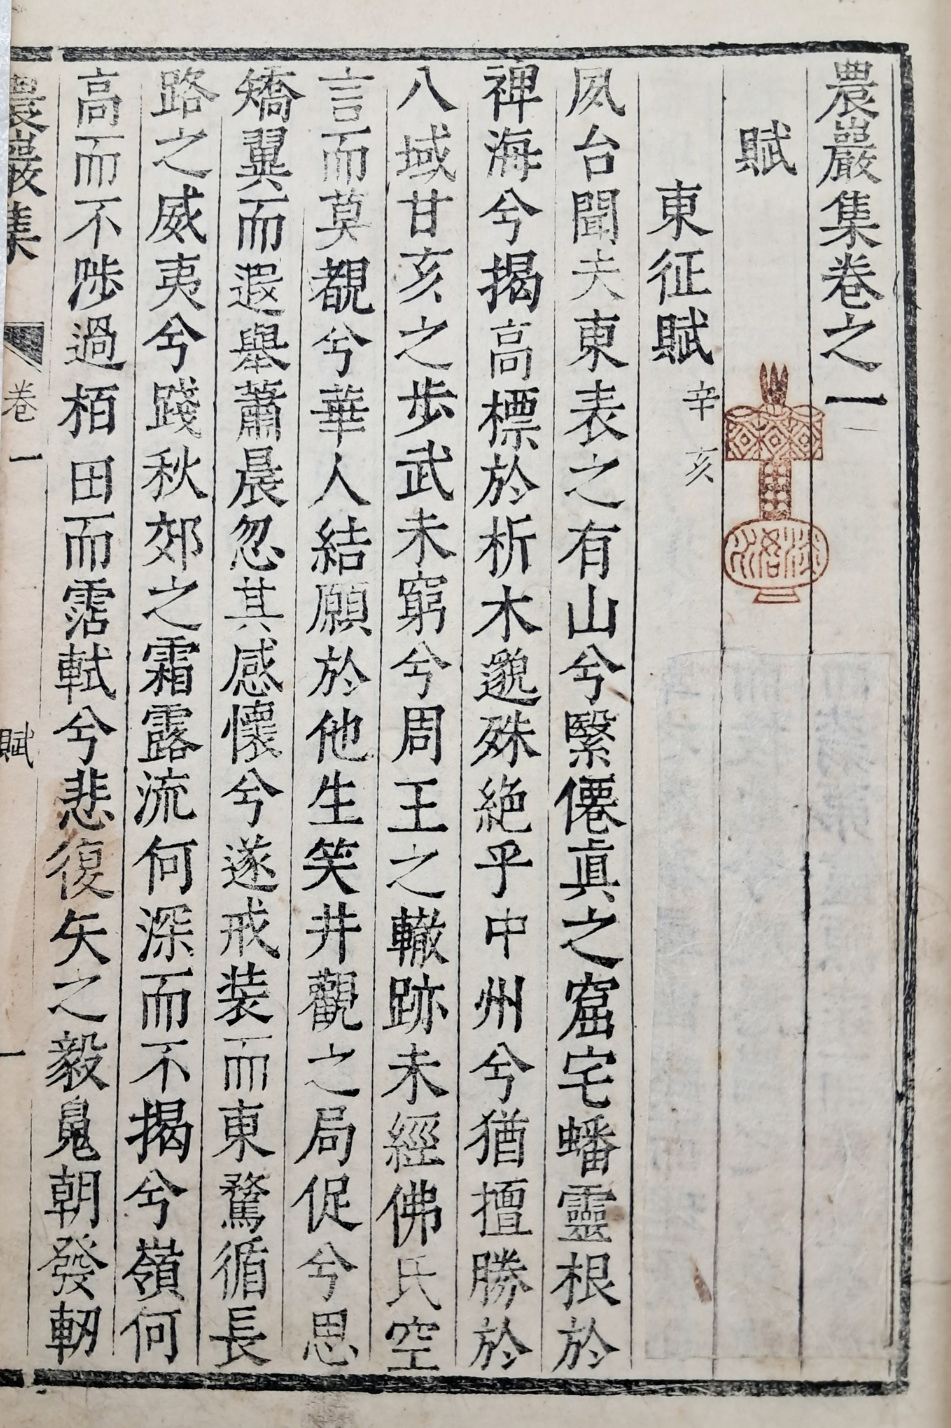 農巖集卷之一
賦
東征賦 辛亥
夙台聞夫東表之有山兮繄僊眞之窟宅蟠靈根於
裨海兮揭高標於析木邈殊絶乎中州兮猶擅勝於
八域甘亥之步武未窮兮周王之轍跡未經佛氏空
言而莫覩兮華人結願於他生笑井觀之局促兮思
矯翼而遐擧蕭晨忽其感懷兮遂戒装而東騖循長
路之威夷兮踐秋郊之霜露流何深而不揭兮嶺何
高而不陟過栢田而霑軾兮悲復矢之毅鬼朝發軔
農巖集
卷一
賦
一